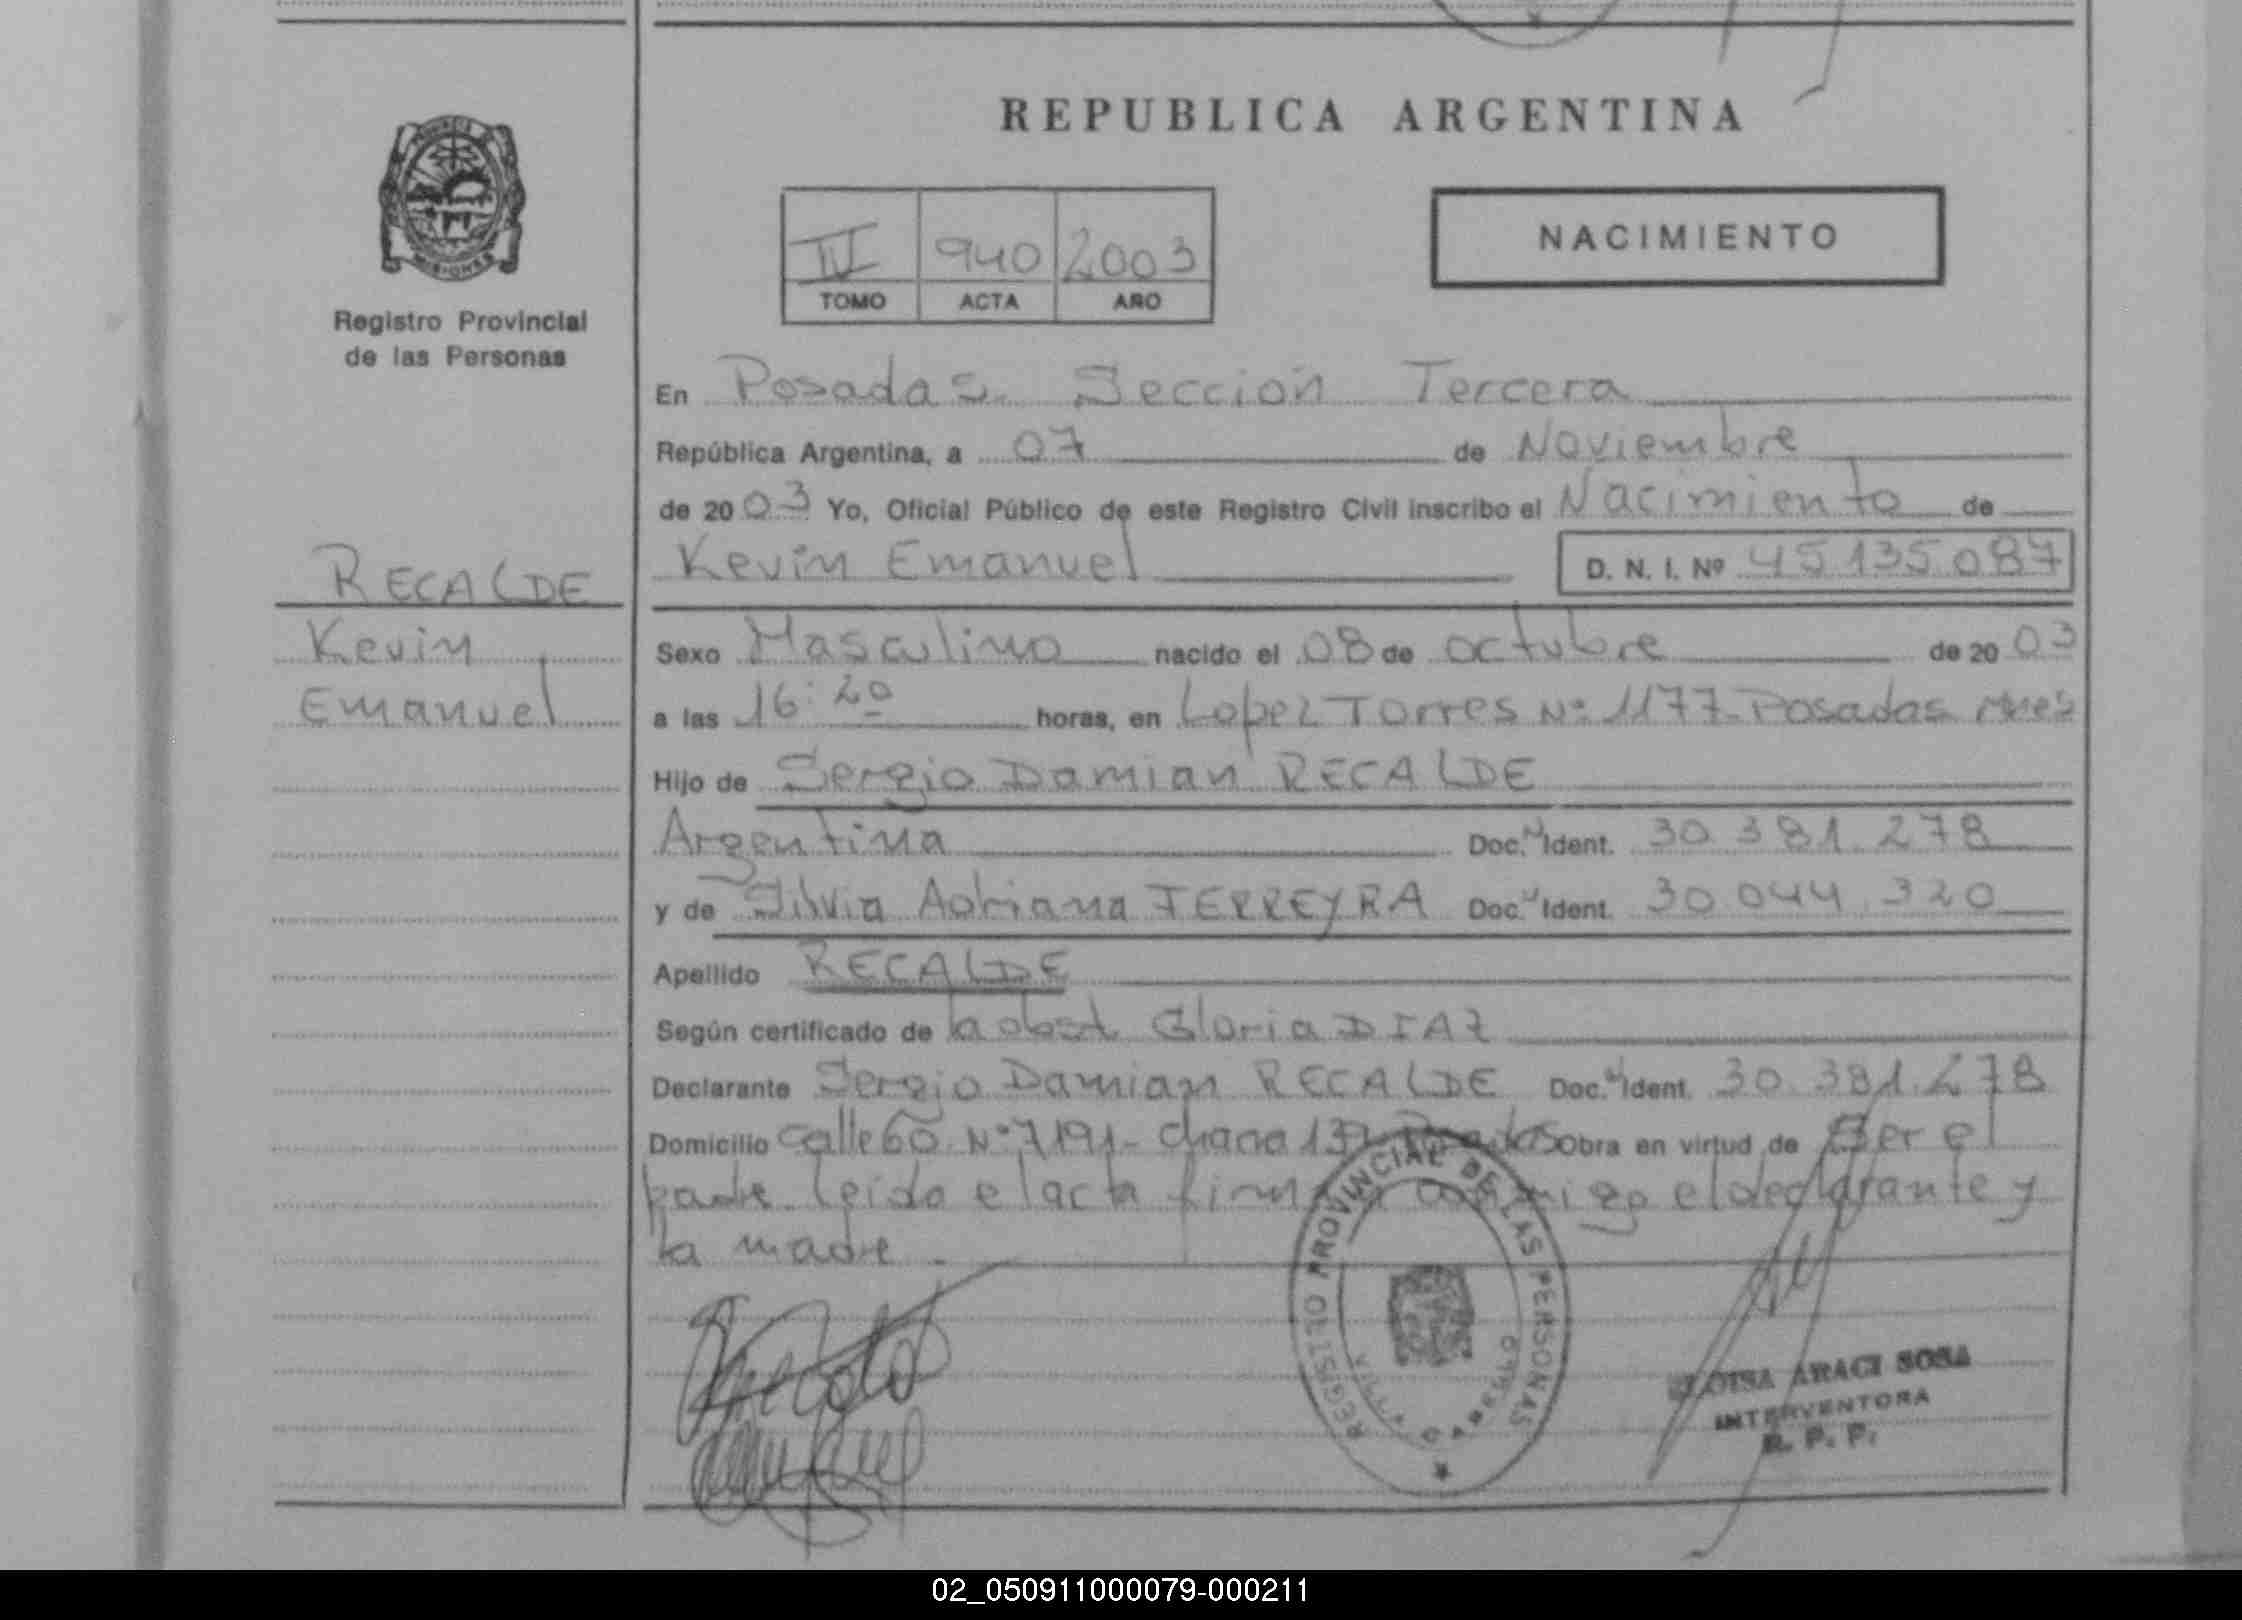 REPUBLICA ARGENTINA
PROVINCIA DE
MISIONES
Registro Provincial
de las Personas
IV 940 2003
TOMO ACTA AÑO
NACIMIENTO
En Posadas. Sección Tercera
República Argentina, a 07 de Noviembre
de 2003 Yo, Oficial Público de este Registro Civil inscribo el Nacimiento de
Kevin Emanuel D. N. I. Nº 45.135.087
RECALDE
Kevin
Emanuel
Sexo Masculino nacido el 08 de octubre de 2003
a las 16:20 horas, en Lopez Torres Nº 1177- Posadas Mnes
Hijo de Sergio Damian RECALDE
Argentina Doc. N Ident. 30.381.278
y de Silvia Adriana FERREYRA Doc. N Ident. 30.044.320
Apellido RECALDE
Según certificado de la obst Gloria DIAZ
Declarante Sergio Damian RECALDE Doc. N Ident. 30.381.278
Domicilio calle 60 Nº 7191- chacra Obra en virtud de Ser el
padre. leido el acta firman conmigo el declarante y
la madre.
REGISTRO PROVINCIAL DE LAS PERSONAS
VILLA CABELLO
ELOISA ARACI SOSA
INTERVENTORA
R. P. P.
02_050911000079-000211